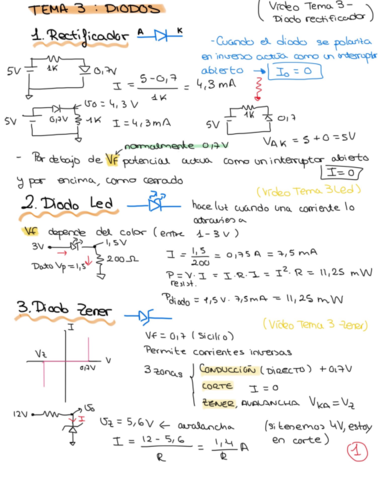 TEMA 3: DIODOS
(Vídeo Tema 3 -
Diodo rectificador)
1. Rectificador A K
- Cuando el diodo se polariza
en inverso actúa como un interruptor
abierto → I₀ = 0
5V 1K 0,7V
I = 5-0,7 / 1K = 4,3mA
U₀ = 4,3V
5V 0,7V 1K I = 4,3mA
5V 1K 0,7
V_AK = 5+0 = 5V
normalmente 0,7V
- Por debajo de Vf potencial actua como un interruptor abierto
I = 0
y por encima, como cerrado
(Vídeo Tema 3 Led)
2. Diodo Led
hace luz cuando una corriente lo
atraviesa
Vf depende del color (entre 1-3V)
3V 1,5V
200Ω
Dato Vp = 1,5
I = 1,5 / 200 = 0,75A = 7,5mA
P = V·I = I·R·I = I²·R = 11,25 mW
resist.
P diodo = 1,5V·7,5mA = 11,25 mW
3. Diodo Zener
(Vídeo Tema 3 Zener)
I
Vz
0,7V
Vf = 0,7 (Silicio)
Permite corrientes inversas
3 zonas
CONDUCCIÓN (DIRECTO) + 0,7V
CORTE I = 0
ZENER, AVALANCHA V_KA = Vz
12V U₀
I
Vz = 5,6V ← avalancha
(si tenemos 4V, estoy
en corte)
I = 12-5,6 / R = 1,4 / R A
1